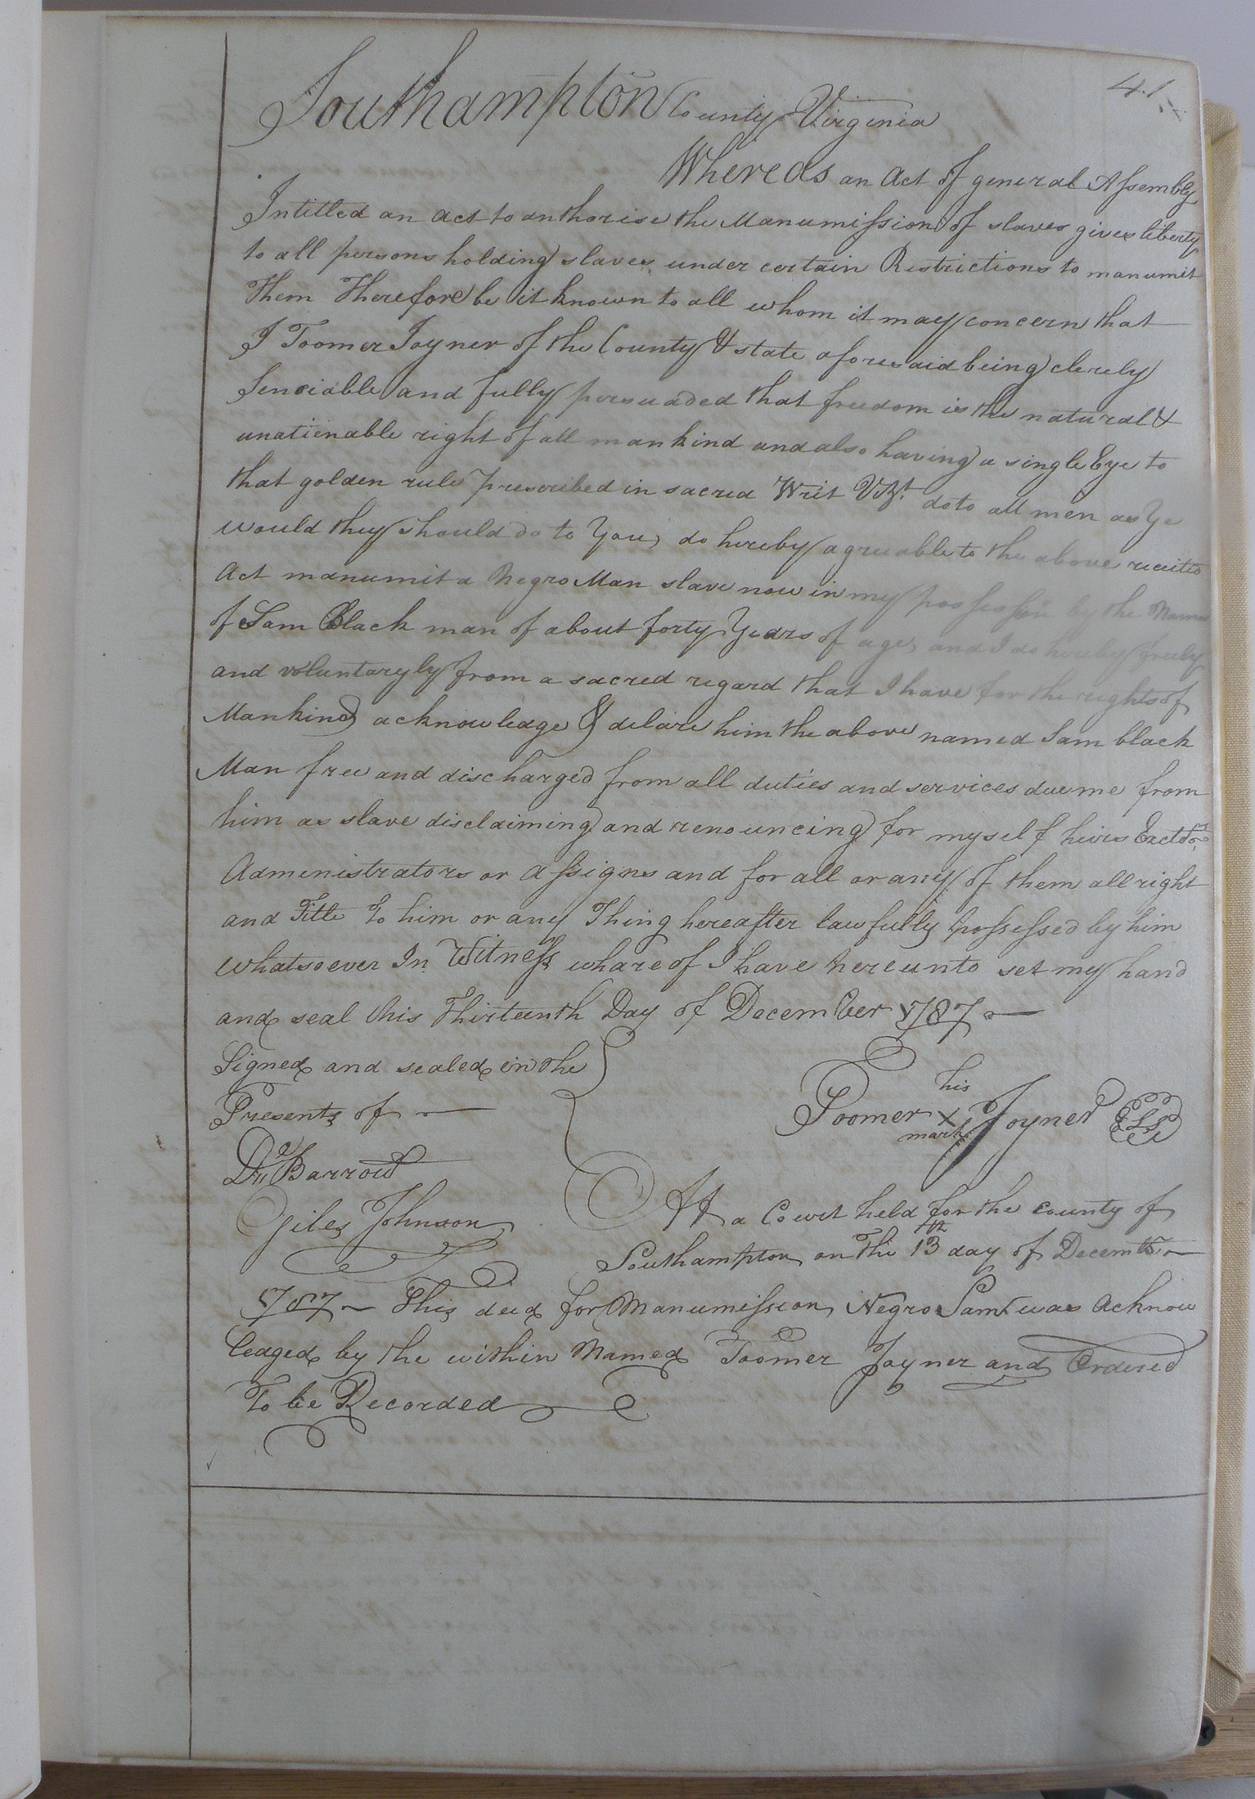 41
Southampton County Virginia
Whereas an Act of general Assembly
Intitled an act to authorise the Manumission of slaves gives liberty
to all persons holding slaves under certain Restrictions to manumit
them Therefore be it known to all whom it may concern that
I Toomer Joyner of the County & state aforesaid being clerely
senciable and fully persuaded that freedom is the natural &
unatienable right of all mankind and also having a single Eye to
that golden rule prescribed in sacred Writ Vizt. do to all men as Ye
would they should do to You, do hereby agreeable to the above recited
Act manumit a Negro Man slave now in my possession by the Name
of Sam Black man of about forty Years of age, and I do hereby freely
and voluntaryly from a sacred regard that I have for the rights of
Mankind acknowledge & delare him the above named Sam black
Man free and discharged from all duties and services due me from
him as slave disclaiming and renouncing for myself heirs Exectors
Administrators or assigns and for all or any of them all right
and Title to him or any Thing hereafter lawfully possessed by him
whatsoever In Witness whareof I have hereunto set my hand
and seal this Thirteenth Day of December 1787
Signed and sealed in the
Presents of
his
Toomer X Joyner LS
mark
Dd. Barrow
Giles Johnson
At a Court held for the county of
Southampton on the 13th day of Decembr.
1787 This deed for Manumission, Negro Sam was Acknow
ledged by the within Named Toomer Joyner and Ordered
To be Recorded